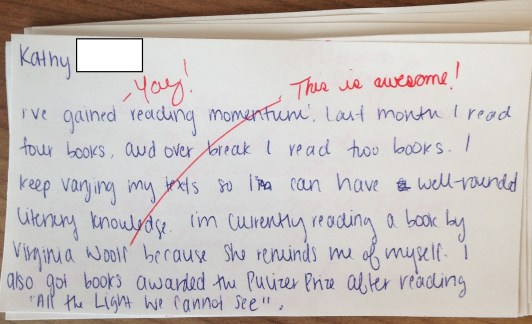 Kathy
-Yay!
This is awesome!
I've gained reading momentum. Last month I read
four books, and over break I read two books. I
keep varying my texts so I can have a well-rounded
literary knowledge. I'm currently reading a book by
Virginia Woolf because she reminds me of myself. I
also got books awarded the Pulizer Prize after reading
"All the Light We Cannot See".